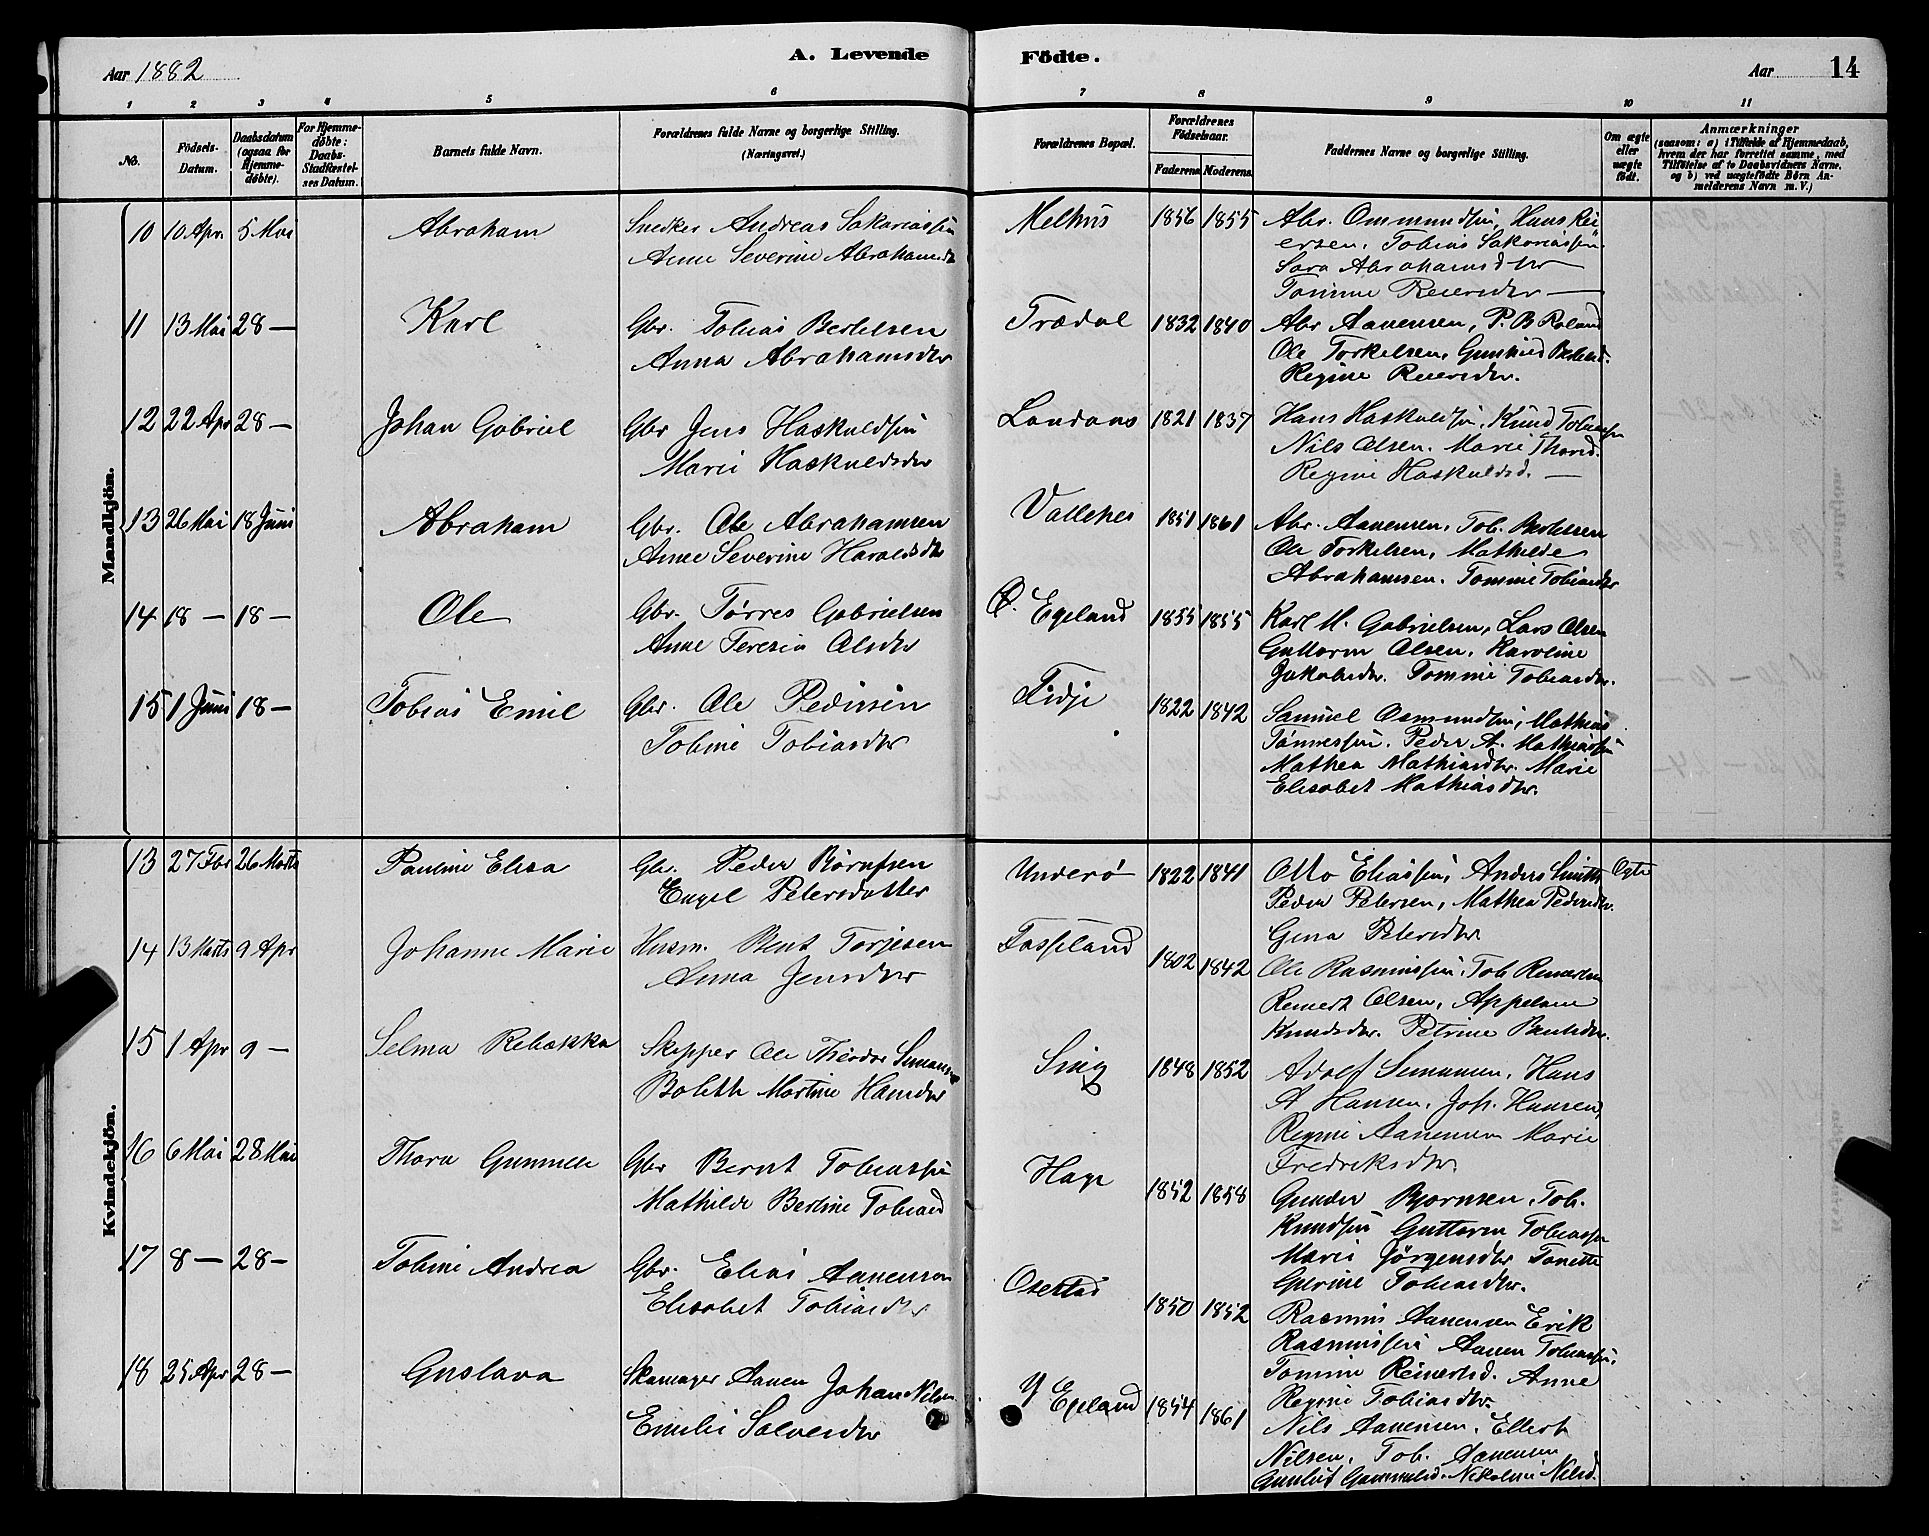 Aar 1882
A. Levende Födte.
Aar 14
1 2 3 4 5 6 7 8 9 10 11
No.
Födsels-
Datum.
Daabsdatum
(ogsaa for
Hjemme-
döbte).
For Hjemme-
döbte:
Daabs-
Stadfæstel-
ses Datum.
Barnets fulde Navn.
Forældrenes fulde Navne og borgerlige Stilling.
(Næringsvei.)
Forældrenes Bopæl.
Forældrenes
Födselsaar.
Faderens Moderens
Faddernes Navne og borgerlige Stilling.
Om ægte
eller
uægte
födt.
Anmærkninger
(saasom: a) i Tilfælde af Hjemmedaab,
hvem der har forrettet samme, med
Tilföielse af to Daabsvidners Navne,
og b) ved uægtefödte Börn An-
melderens Navn m. V.)
Mandkjön.
10 10 Apr. 5 Mai Abraham
Snedker Andreas Sakariassen
Anne Severine Abrahamsdr
Melhus 1856 1855
Abr. Ommundsen, Hans Rei
ersen. Tobias Sakariassen
Sara Abrahamsdtr
Tomine Reiersdtr —
11 13 Mai 28 — Karl
Gbr. Tobias Bertelsen
Anna Abrahamsdtr
Trædal 1832 1840
Abr Aanensen, P. B Roland
Ole Torkelsen, Gunhild
Regine Reiersdtr.
12 22 Apr 28 — Johan Gabriel
Gbr Jens Haskuldsen
Marie Haskuldsdtr
1821 1837
Hans Haskuldsen, Knud Tobiassen
Nils Olsen. Marie
Regine Haskuldsd. —
13 26 Mai 18 Juni Abraham
Gbr. Ole Abrahamsen
Anne Severine Haraldsdtr
1851 1861
Abr. Aanensen, Tob. Bertelsen
Ole Torkelsen, Mathilde
Abrahamsen. Tomine Tobiasdtr
14 18 — 18 — Ole
Gbr. Törres Gabrielsen
Anne Teresia Olsdtr
Ø. Egeland 1855 1855
Karl M. Gabrielsen, Lars Olsen
Guttorm Olsen, Karoline
Jakobsdtr. Tomine Tobiasdtr.
15 1 Juni 18 — Tobias Emil
Gbr. Ole Pedersen
Tobine Tobiasdtr
Fidje 1822 1842
Samuel Osmundsen, Mathias
Tönnessen. Peder A. Mathiassen
Mathea Mathiasdtr. Marie
Elisabet Mathiasdtr.
Kvindekjön.
13 27 Fbr 26 Marts Pauline Elisa
Gbr. Peder Börufsen
Engel Petersdatter
Underö 1822 1841
Otto Eliassen, Anders Smith
Peder Petersen, Mathea Pedersdtr.
Gina Petersdtr
Ægte
14 13 Marts 9 Apr Johanne Marie
Husm. Bent Torjesen
Anna Jensdtr
Fosseland 1802 1842
Ole Rasmussen, Tob Reinertsen
Reinert Olsen, Appelone
Knudsdtr. Petrine Bentsdtr.
15 1 Apr 9 — Selma Rebekka
Skipper Ole Theodor Simonsen
Boleth Martine Hansdtr
1848 1852
Adolf Simonsen, Hans
A Hansen, Joh. Hansen
Regine Aanensen Marie
Fredriksdtr.
16 6 Mai 28 Mai Thora Gunnele
Gbr Bernt Tobiassen
Mathilde Bertine Tobiasd
Hage 1852 1858
Gunder Bjornsen, Tob.
Knudsen Guttorm Tobiassen
Marie Jörgensdtr Tonette
Gurine Tobiasdtr.
17 8 — 28 — Tobine Andrea
Gbr. Elias Aanensen
Elisabet Tobiasdtr
Osestad 1850 1852
Rasmus Aanensen Erik
Rasmussen Aanen Tobiassen,
Tomine Reinertsd. Anne
Regine Tobiasdtr.
18 25 Apr 28 — Gustava
Skomager Aanen Johan Nilsen
Emilie Salvesdtr
Y Egeland 1854 1861
Nils Aanensen, Ellert
Nilsen, Tob. Aanensen
Gunlut Gammelsd. Nikoline Nilsd.